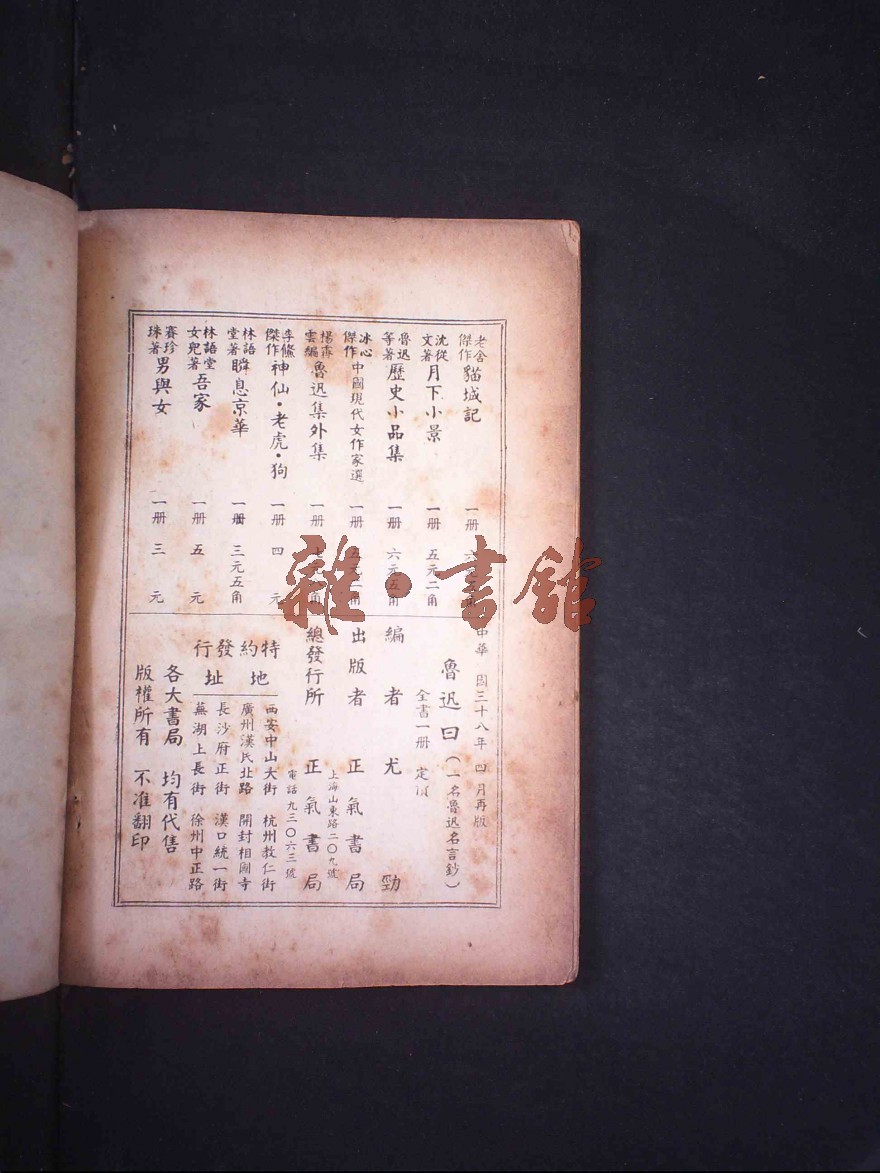 老舍傑作 貓城記 一册 六元
沈從文著 月下小景 一册 五元二角
魯迅等著 歷史小品集 一册 六元五角
冰心傑作 中國現代女作家選 一册 五元二角
楊霽雲編 魯迅集外集 一册 角
李傑作 神仙・老虎・狗 一册 四元
林語堂著 瞬息京華 一册 三元五角
林語堂女兒著 吾家 一册 五元
賽珍珠著 男與女 一册 三元
中華 國三十八年 四月再版
魯迅曰(一名魯迅名言鈔)
全書一册 定價
編者 尤勁
出版者 正氣書局
上海山東路二〇九號
總發行所 正氣書局
電話九三〇六三號
特約發行
地址
西安中山大街 杭州教仁街
廣州漢民北路 開封相國寺
長沙府正街 漢口統一街
蕪湖上長街 徐州中正路
各大書局 均有代售
版權所有 不准翻印
雜・書館